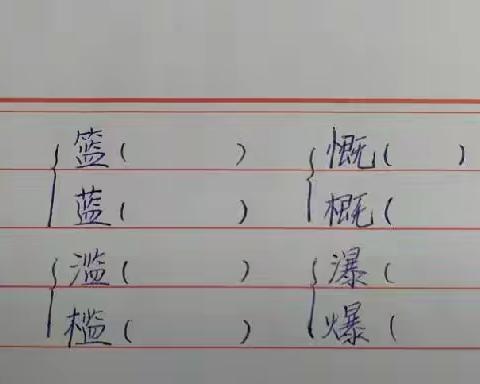 篮（ ） 慨（ ）
蓝（ ） 概（
滥（ ） 瀑（
槛（ ） 爆（